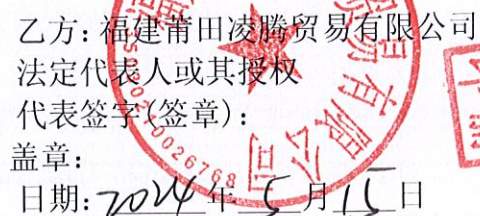 乙方：福建莆田凌腾贸易有限公司
法定代表人或其授权
代表签字(签章)：
盖章：
日期：2024年5月15日
贸易有限公司